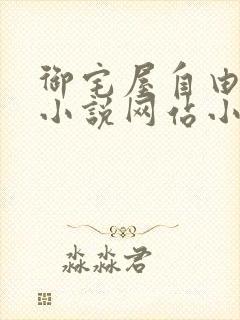 御宅屋自由
小说网佔小
淼淼君